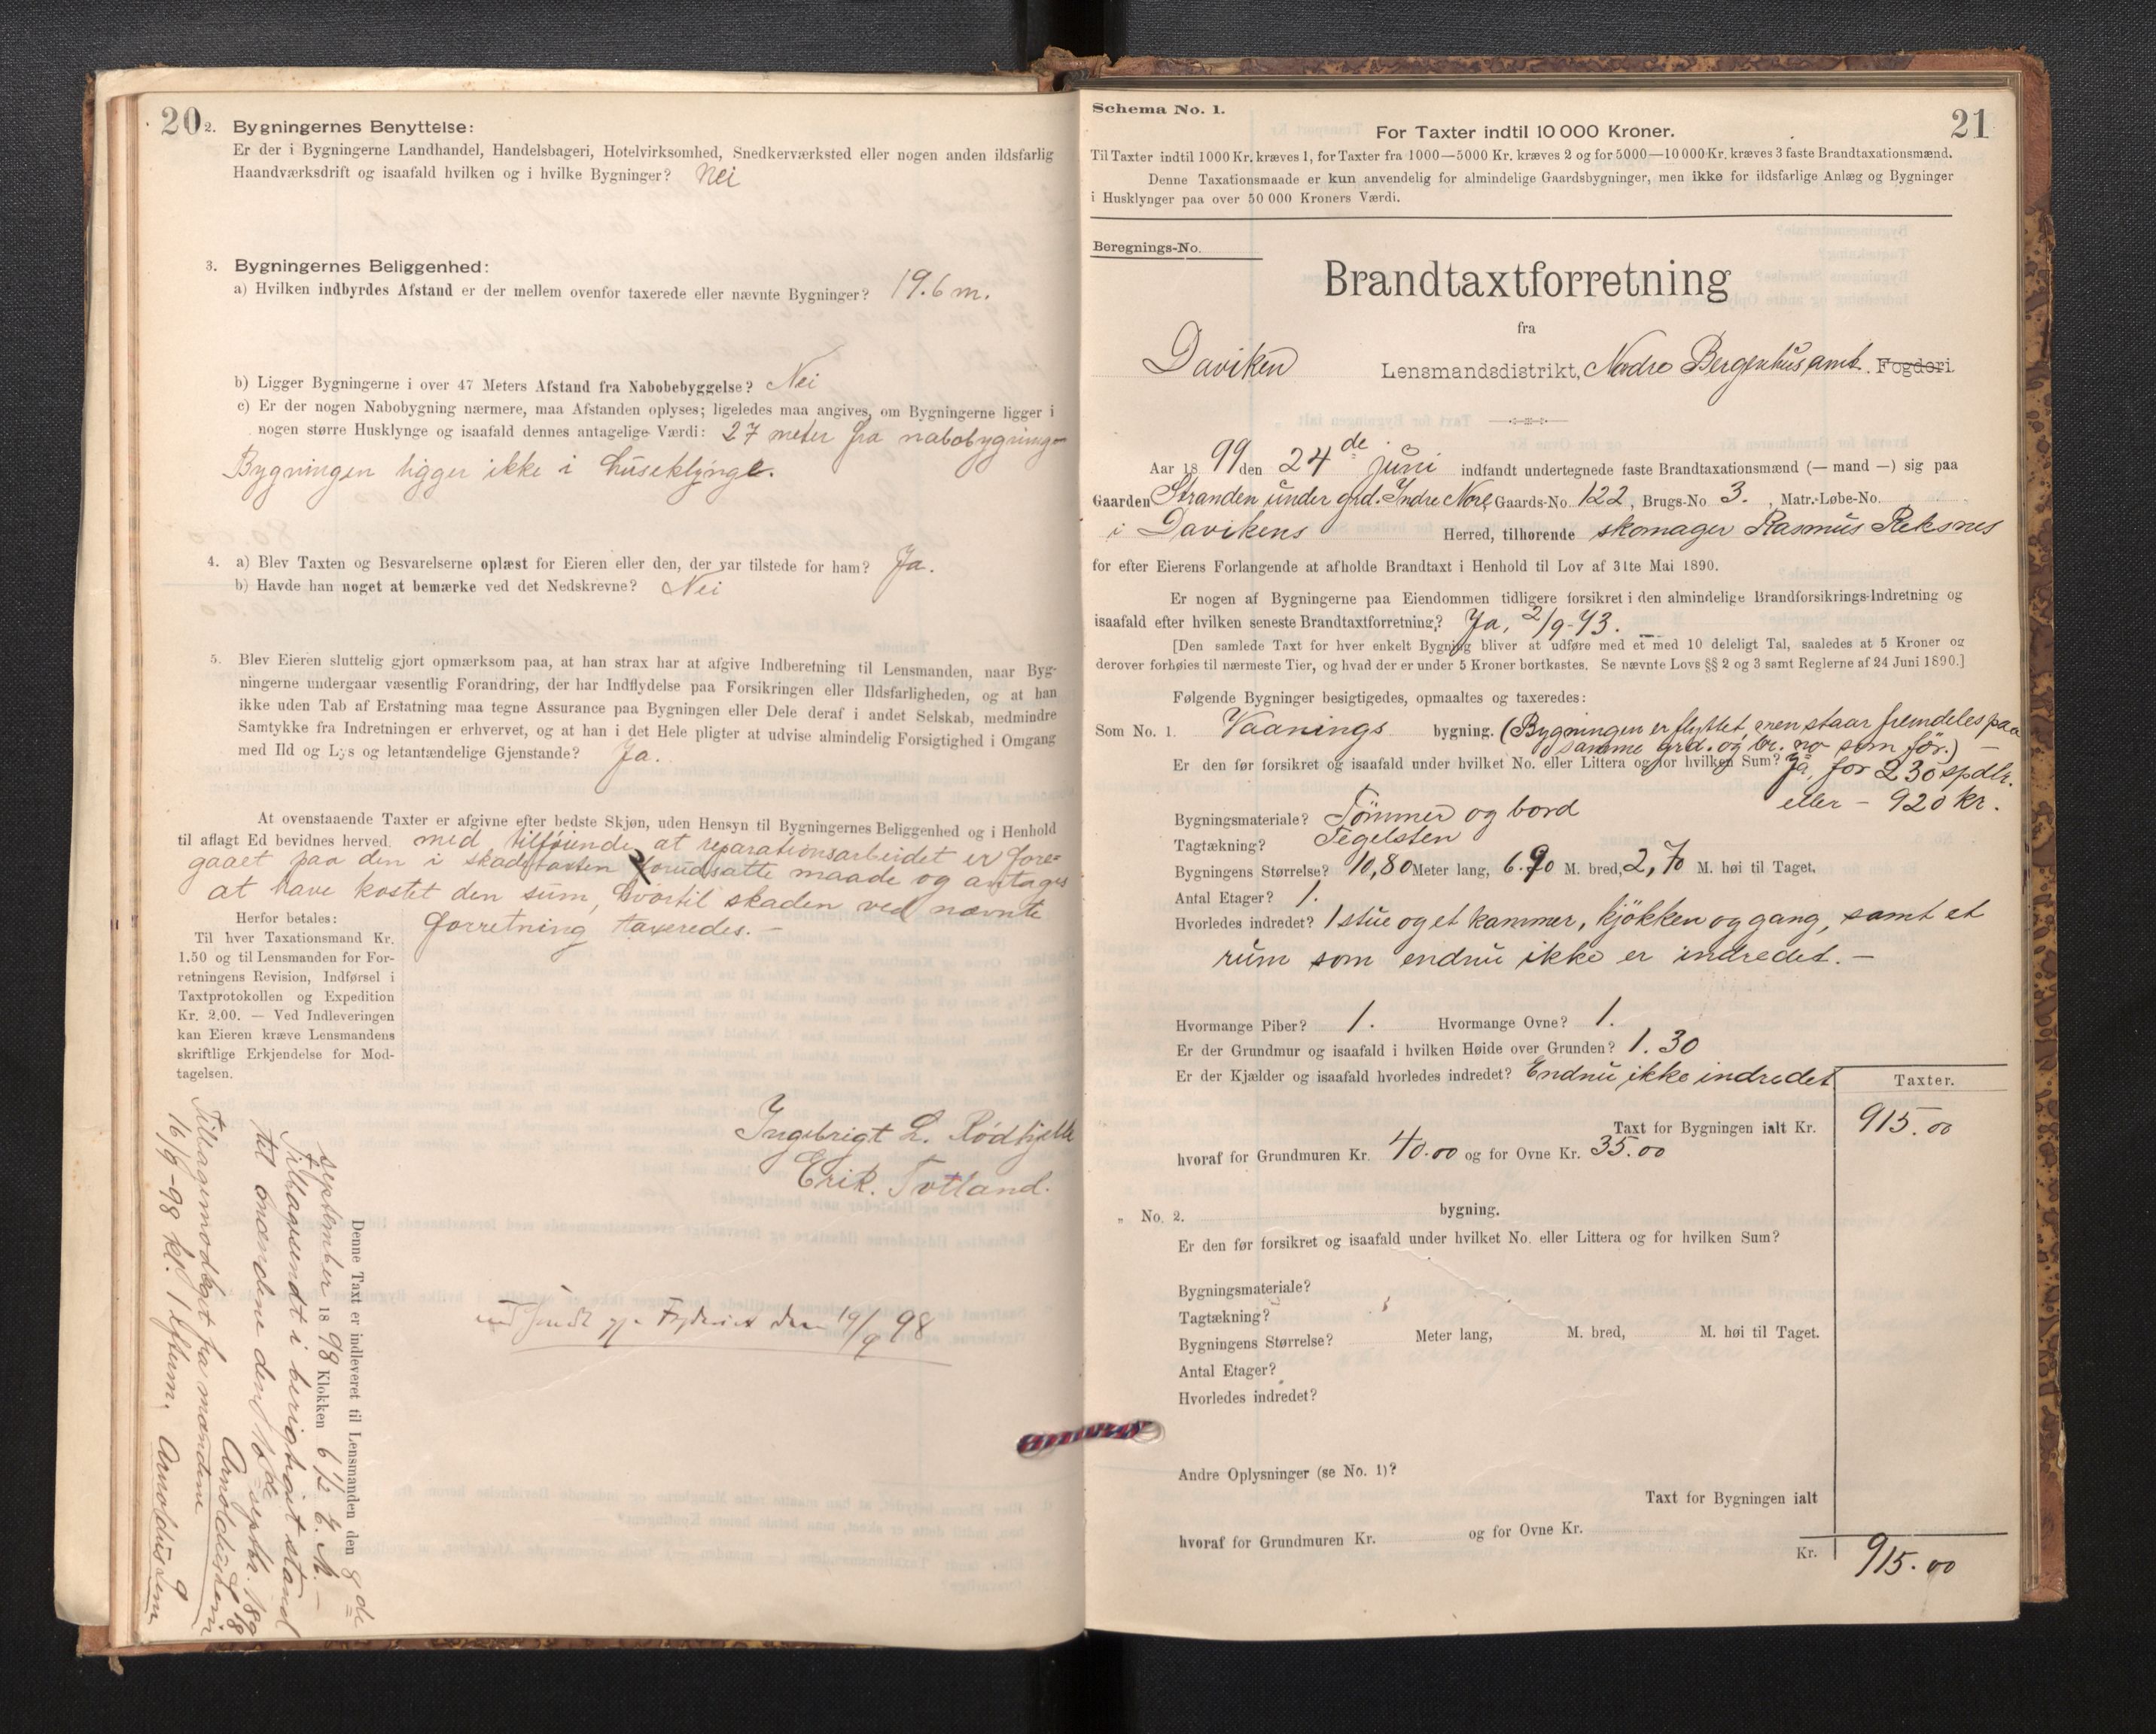 20
2. Bygningernes Benyttelse:
Er der i Bygningerne Landhandel, Handelsbageri, Hotelvirksomhed, Snedkerværksted eller nogen anden ildsfarlig
Haandværksdrift og isaafald hvilken og i hvilke Bygninger? Nei
3. Bygningernes Beliggenhed:
a) Hvilken indbyrdes Afstand er der mellem ovenfor taxerede eller nævnte Bygninger? 19.6 m.
b) Ligger Bygningerne i over 47 Meters Afstand fra Nabobebyggelse? Nei
c) Er der nogen Nabobygning nærmere, maa Afstanden oplyses; ligeledes maa angives, om Bygningerne ligger i
nogen større Husklynge og isaafald dennes antagelige Værdi: 27 meter fra nabobygning-
Bygningen ligger ikke i huseklynge.
4. a) Blev Taxten og Besvarelserne oplæst for Eieren eller den, der var tilstede for ham? Ja.
b) Havde han noget at bemærke ved det Nedskrevne? Nei
5. Blev Eieren sluttelig gjort opmærksom paa, at han strax har at afgive Indberetning til Lensmanden, naar Byg-
ningerne undergaar væsentlig Forandring, der har Indflydelse paa Forsikringen eller Ildsfarligheden, og at han
ikke uden Tab af Erstatning maa tegne Assurance paa Bygningen eller Dele deraf i andet Selskab, medmindre
Samtykke fra Indretningen er erhvervet, og at han i det Hele pligter at udvise almindelig Forsigtighed i Omgang
med Ild og Lys og letantændelige Gjenstande? Ja.
At ovenstaaende Taxter er afgivne efter bedste Skjøn, uden Hensyn til Bygningernes Beliggenhed og i Henhold
til aflagt Ed bevidnes herved. med tilføiende, at reparationsarbeidet er fore-
gaaet paa den i skadetaxten forudsatte maade og antages
at have kostet den sum, hvortil skaden ved nævnte
forretning taxeredes. -
Herfor betales:
Til hver Taxationsmand Kr.
1.50 og til Lensmanden for For-
retningens Revision, Indførsel i
Taxtprotokollen og Expedition
Kr. 2.00. — Ved Indleveringen
kan Eieren kræve Lensmandens
skriftlige Erkjendelse for Mod-
tagelsen.
Ingebrigt L. Rødfjelle
Erik. Totland.
Denne Taxt er indleveret til Lensmanden den 8de
september 1898 Klokken 6 1/2 E. M. -
Tilbagesendt i berigtiget stand
til mændene den 10de septbr. 1898
Arnoldus
Tilbagemodtaget fra mændene
16/9-98 kl. 1 Eftum. Arnoldus
den 19/9 98
Schema No. 1.
21
For Taxter indtil 10 000 Kroner.
Til Taxter indtil 1000 Kr. kræves 1, for Taxter fra 1000—5000 Kr. kræves 2 og for 5000—10 000 Kr. kræves 3 faste Brandtaxationsmænd.
Denne Taxationsmaade er kun anvendelig for almindelige Gaardsbygninger, men ikke for ildsfarlige Anlæg og Bygninger
i Husklynger paa over 50 000 Kroners Værdi.
Beregnings-No.
Brandtaxtforretning
fra
Daviken Lensmandsdistrikt, Nordre Bergenhus amt. Fogderi.
Aar 1899 den 24de juni indfandt undertegnede faste Brandtaxationsmænd (— mand —) sig paa
Gaarden Stranden under grd. Indre Nore, Gaards-No. 122, Brugs-No 3. , Matr.-Løbe-No.
i Davikens Herred, tilhørende skomager Rasmus Reksnes
for efter Eierens Forlangende at afholde Brandtaxt i Henhold til Lov af 31te Mai 1890.
Er nogen af Bygningerne paa Eiendommen tidligere forsikret i den almindelige Brandforsikrings-Indretning og
isaafald efter hvilken seneste Brandtaxtforretning? Ja, 2/9-73.
[Den samlede Taxt for hver enkelt Bygning bliver at udføre med et med 10 deleligt Tal, saaledes at 5 Kroner og
derover forhøies til nærmeste Tier, og hvad der er under 5 Kroner bortkastes. Se nævnte Lovs §§ 2 og 3 samt Reglerne af 24 Juni 1890.]
Følgende Bygninger besigtigedes, opmaaltes og taxeredes:
Som No. 1. Vaanings bygning. (Bygningen er flyttet, men staar fremdeles paa
samme grd. og br. no som før.) -
Er den før forsikret og isaafald under hvilket No. eller Littera og for hvilken Sum? Ja, for 230 spdlr.
eller - 920 kr.
Bygningsmateriale? Tømmer og bord
Tagtækning? Tegelsten
Bygningens Størrelse? 10,80 Meter lang, 6.90 M. bred, 2,70 M. høi til Taget.
Antal Etager? 1.
Hvorledes indredet? 1 stue og et kammer, kjøkken og gang, samt et
rum som endnu ikke er indredet. -
Hvormange Piber? 1. Hvormange Ovne? 1.
Er der Grundmur og isaafald i hvilken Høide over Grunden? 1.30
Er der Kjælder og isaafald hvorledes indredet? Endnu ikke indredet
Taxter.
Taxt for Bygningen ialt Kr. 915.00
hvoraf for Grundmuren Kr. 40.00 og for Ovne Kr. 35.00
„ No. 2. bygning.
Er den før forsikret og isaafald under hvilket No. eller Littera og for hvilken Sum?
Bygningsmateriale?
Tagtækning?
Bygningens Størrelse? Meter lang, M. bred, M. høi til Taget.
Antal Etager?
Hvorledes indredet?
Andre Oplysninger (se No. 1)?
Taxt for Bygningen ialt
hvoraf for Grundmuren Kr. og for Ovne Kr.
Kr. 915.00